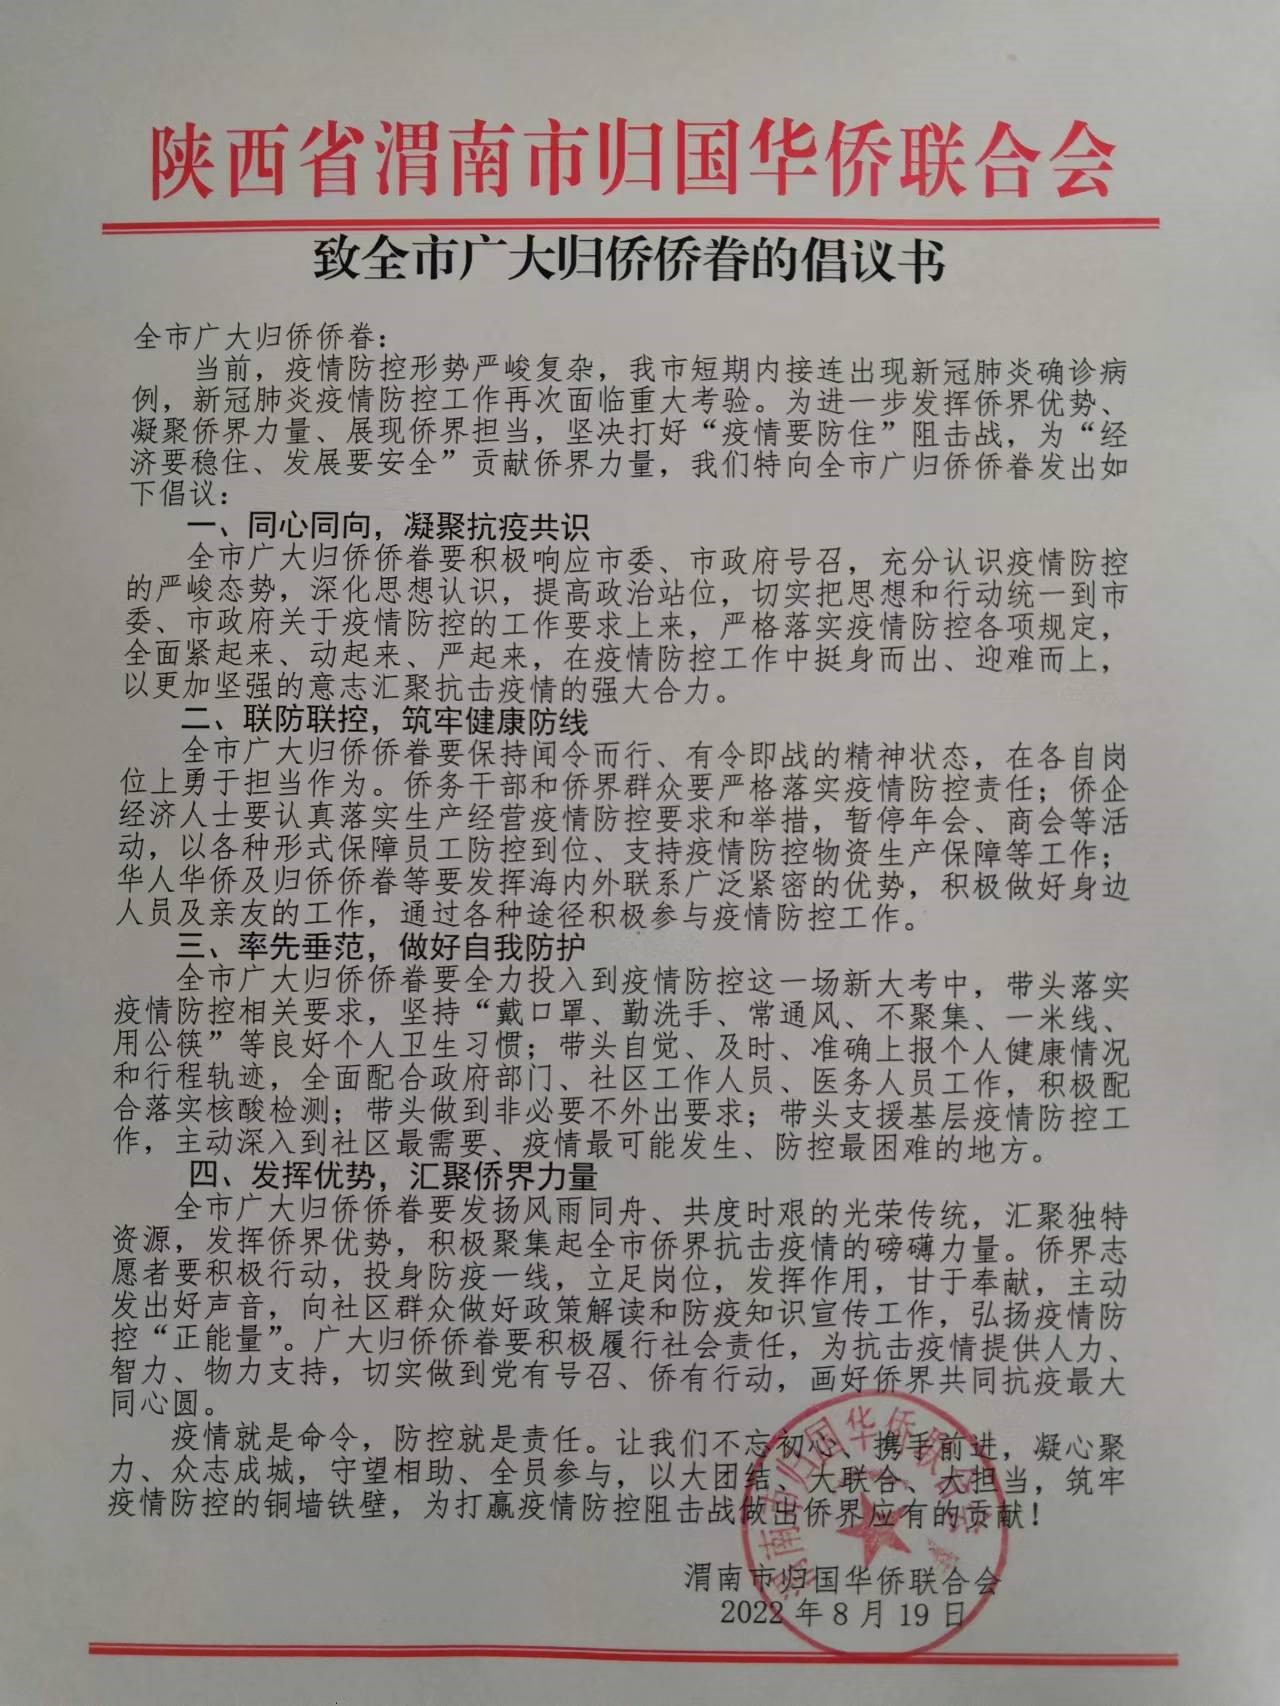 陕西省渭南市归国华侨联合会
致全市广大归侨侨眷的倡议书
全市广大归侨侨眷：
当前，疫情防控形势严峻复杂，我市短期内接连出现新冠肺炎确诊病
例，新冠肺炎疫情防控工作再次面临重大考验。为进一步发挥侨界优势、
凝聚侨界力量、展现侨界担当，坚决打好“疫情要防住”阻击战，为“经
济要稳住、发展要安全”贡献侨界力量，我们特向全市广归侨侨眷发出如
下倡议：
一、同心同向，凝聚抗疫共识
全市广大归侨侨眷要积极响应市委、市政府号召，充分认识疫情防控
的严峻态势，深化思想认识，提高政治站位，切实把思想和行动统一到市
委、市政府关于疫情防控的工作要求上来，严格落实疫情防控各项规定，
全面紧起来、动起来、严起来，在疫情防控工作中挺身而出、迎难而上，
以更加坚强的意志汇聚抗击疫情的强大合力。
二、联防联控，筑牢健康防线
全市广大归侨侨眷要保持闻令而行、有令即战的精神状态，在各自岗
位上勇于担当作为。侨务干部和侨界群众要严格落实疫情防控责任；侨企
经济人士要认真落实生产经营疫情防控要求和举措，暂停年会、商会等活
动，以各种形式保障员工防控到位、支持疫情防控物资生产保障等工作；
华人华侨及归侨侨眷等要发挥海内外联系广泛紧密的优势，积极做好身边
人员及亲友的工作，通过各种途径积极参与疫情防控工作。
三、率先垂范，做好自我防护
全市广大归侨侨眷要全力投入到疫情防控这一场新大考中，带头落实
疫情防控相关要求，坚持“戴口罩、勤洗手、常通风、不聚集、一米线、
用公筷”等良好个人卫生习惯；带头自觉、及时、准确上报个人健康情况
和行程轨迹，全面配合政府部门、社区工作人员、医务人员工作，积极配
合落实核酸检测；带头做到非必要不外出要求；带头支援基层疫情防控工
作，主动深入到社区最需要、疫情最可能发生、防控最困难的地方。
四、发挥优势，汇聚侨界力量
全市广大归侨侨眷要发扬风雨同舟、共度时艰的光荣传统，汇聚独特
资源，发挥侨界优势，积极聚集起全市侨界抗击疫情的磅礴力量。侨界志
愿者要积极行动，投身防疫一线，立足岗位，发挥作用，甘于奉献，主动
发出好声音，向社区群众做好政策解读和防疫知识宣传工作，弘扬疫情防
控“正能量”。广大归侨侨眷要积极履行社会责任，为抗击疫情提供人力、
智力、物力支持，切实做到党有号召、侨有行动，画好侨界共同抗疫最大
同心圆。
疫情就是命令，防控就是责任。让我们不忘初心、携手前进，凝心聚
力、众志成城，守望相助、全员参与，以大团结、大联合、大担当，筑牢
疫情防控的铜墙铁壁，为打赢疫情防控阻击战做出侨界应有的贡献！
渭南市归国华侨联合会
渭南市归国华侨联合会
2022年8月19日